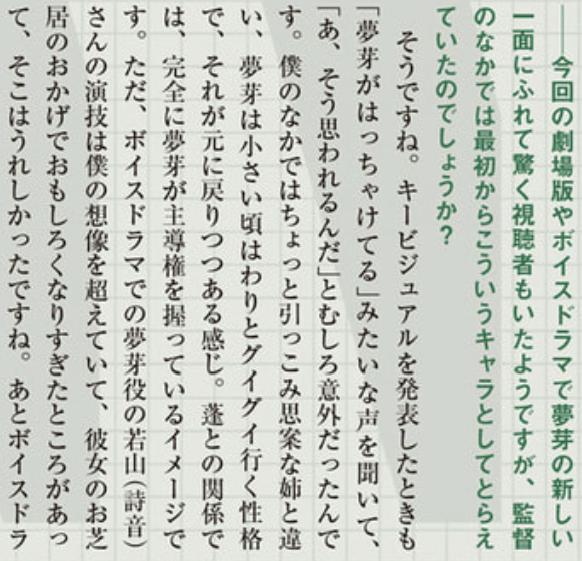 ――今回の劇場版やボイスドラマで夢芽の新しい
一面にふれて驚く視聴者もいたようですが、監督
のなかでは最初からこういうキャラとしてとらえ
ていたのでしょうか？
そうですね。キービジュアルを発表したときも
「夢芽がはっちゃけてる」みたいな声を聞いて、
「あ、そう思われるんだ」とむしろ意外だったんで
す。僕のなかではちょっと引っこみ思案な姉と違
い、夢芽は小さい頃はわりとグイグイ行く性格
で、それが元に戻りつつある感じ。蓬との関係で
は、完全に夢芽が主導権を握っているイメージで
す。ただ、ボイスドラマでの夢芽役の若山（詩音）
さんの演技は僕の想像を超えていて、彼女のお芝
居のおかげでおもしろくなりすぎたところがあっ
て、そこはうれしかったですね。あとボイスドラ